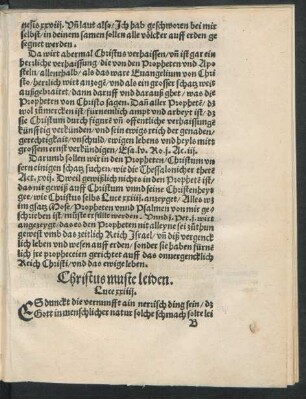 nesis xxviij. Vñ laut also/ Ich hab geschworen bei mir
selbst/ in deinem samen sollen alle völcker auff erden ge
segnet werden.
Da wirt abermal Christus verhaissen/ vñ ist gar ein
herrliche verhaissung/ die von den Propheten vnd Ap
osteln/ allenthalb/ als das ware Euangelium von Chri
sto/ herrlich wirt anzogē/ vnd als ein grosser schatz weit
außgebraitet/ dann darauß vnd darauß gehet/ was die
Propheten von Christo sagen. Dañ aller Prophetē/ dz
wol zu mercken ist/ fürnemlich ampt vnd arbeyt ist/ dz
sie Christum durch figurē vñ offentliche verhaissungē
künfftig verkünden/ vnd sein ewig reich der genaden/
gerechtigkait/ vnschuld/ ewigen lebens vnd heyls mit
grossem ernst verkündigen/ Esa. lv. Ro. j. Ac. iij.
Darumb sollen wir in den Propheten/ Christum vn
sern einigen schatz suchen/ wie die Thessalonicher thetē
Act. xvij. Dweil gewißlich nichts in den Prophetē ist/
das nit gewiß auff Christum vnnd seine Christenheyt
gehe/ wie Christus selbs Luce xxiiij. anzeyget/ Alles wz
im gsatz/ Mose/ Propheten vnnd Psalmen von mir ge
schriben ist/ müste erfüllt werden. Vnnd j. Pet. j. wirt
angezeygt/ das es den Propheten nit alleyne sei zůthun
gewest vmb das zeitlich Reich Israel/ vñ diß vergenck
lich leben vnd wesen auff erden/ sonder sie haben fürne
lich jre propheceien gerichtet auff das onuergencklich
Reich Christi/ vnd das ewige leben.
Christus muste leiden.
Luce xxiiij.
ES dunckt die vernunfft ain nerrisch ding sein/ dz
Gott in menschlicher natur solche schmach solte lei
B